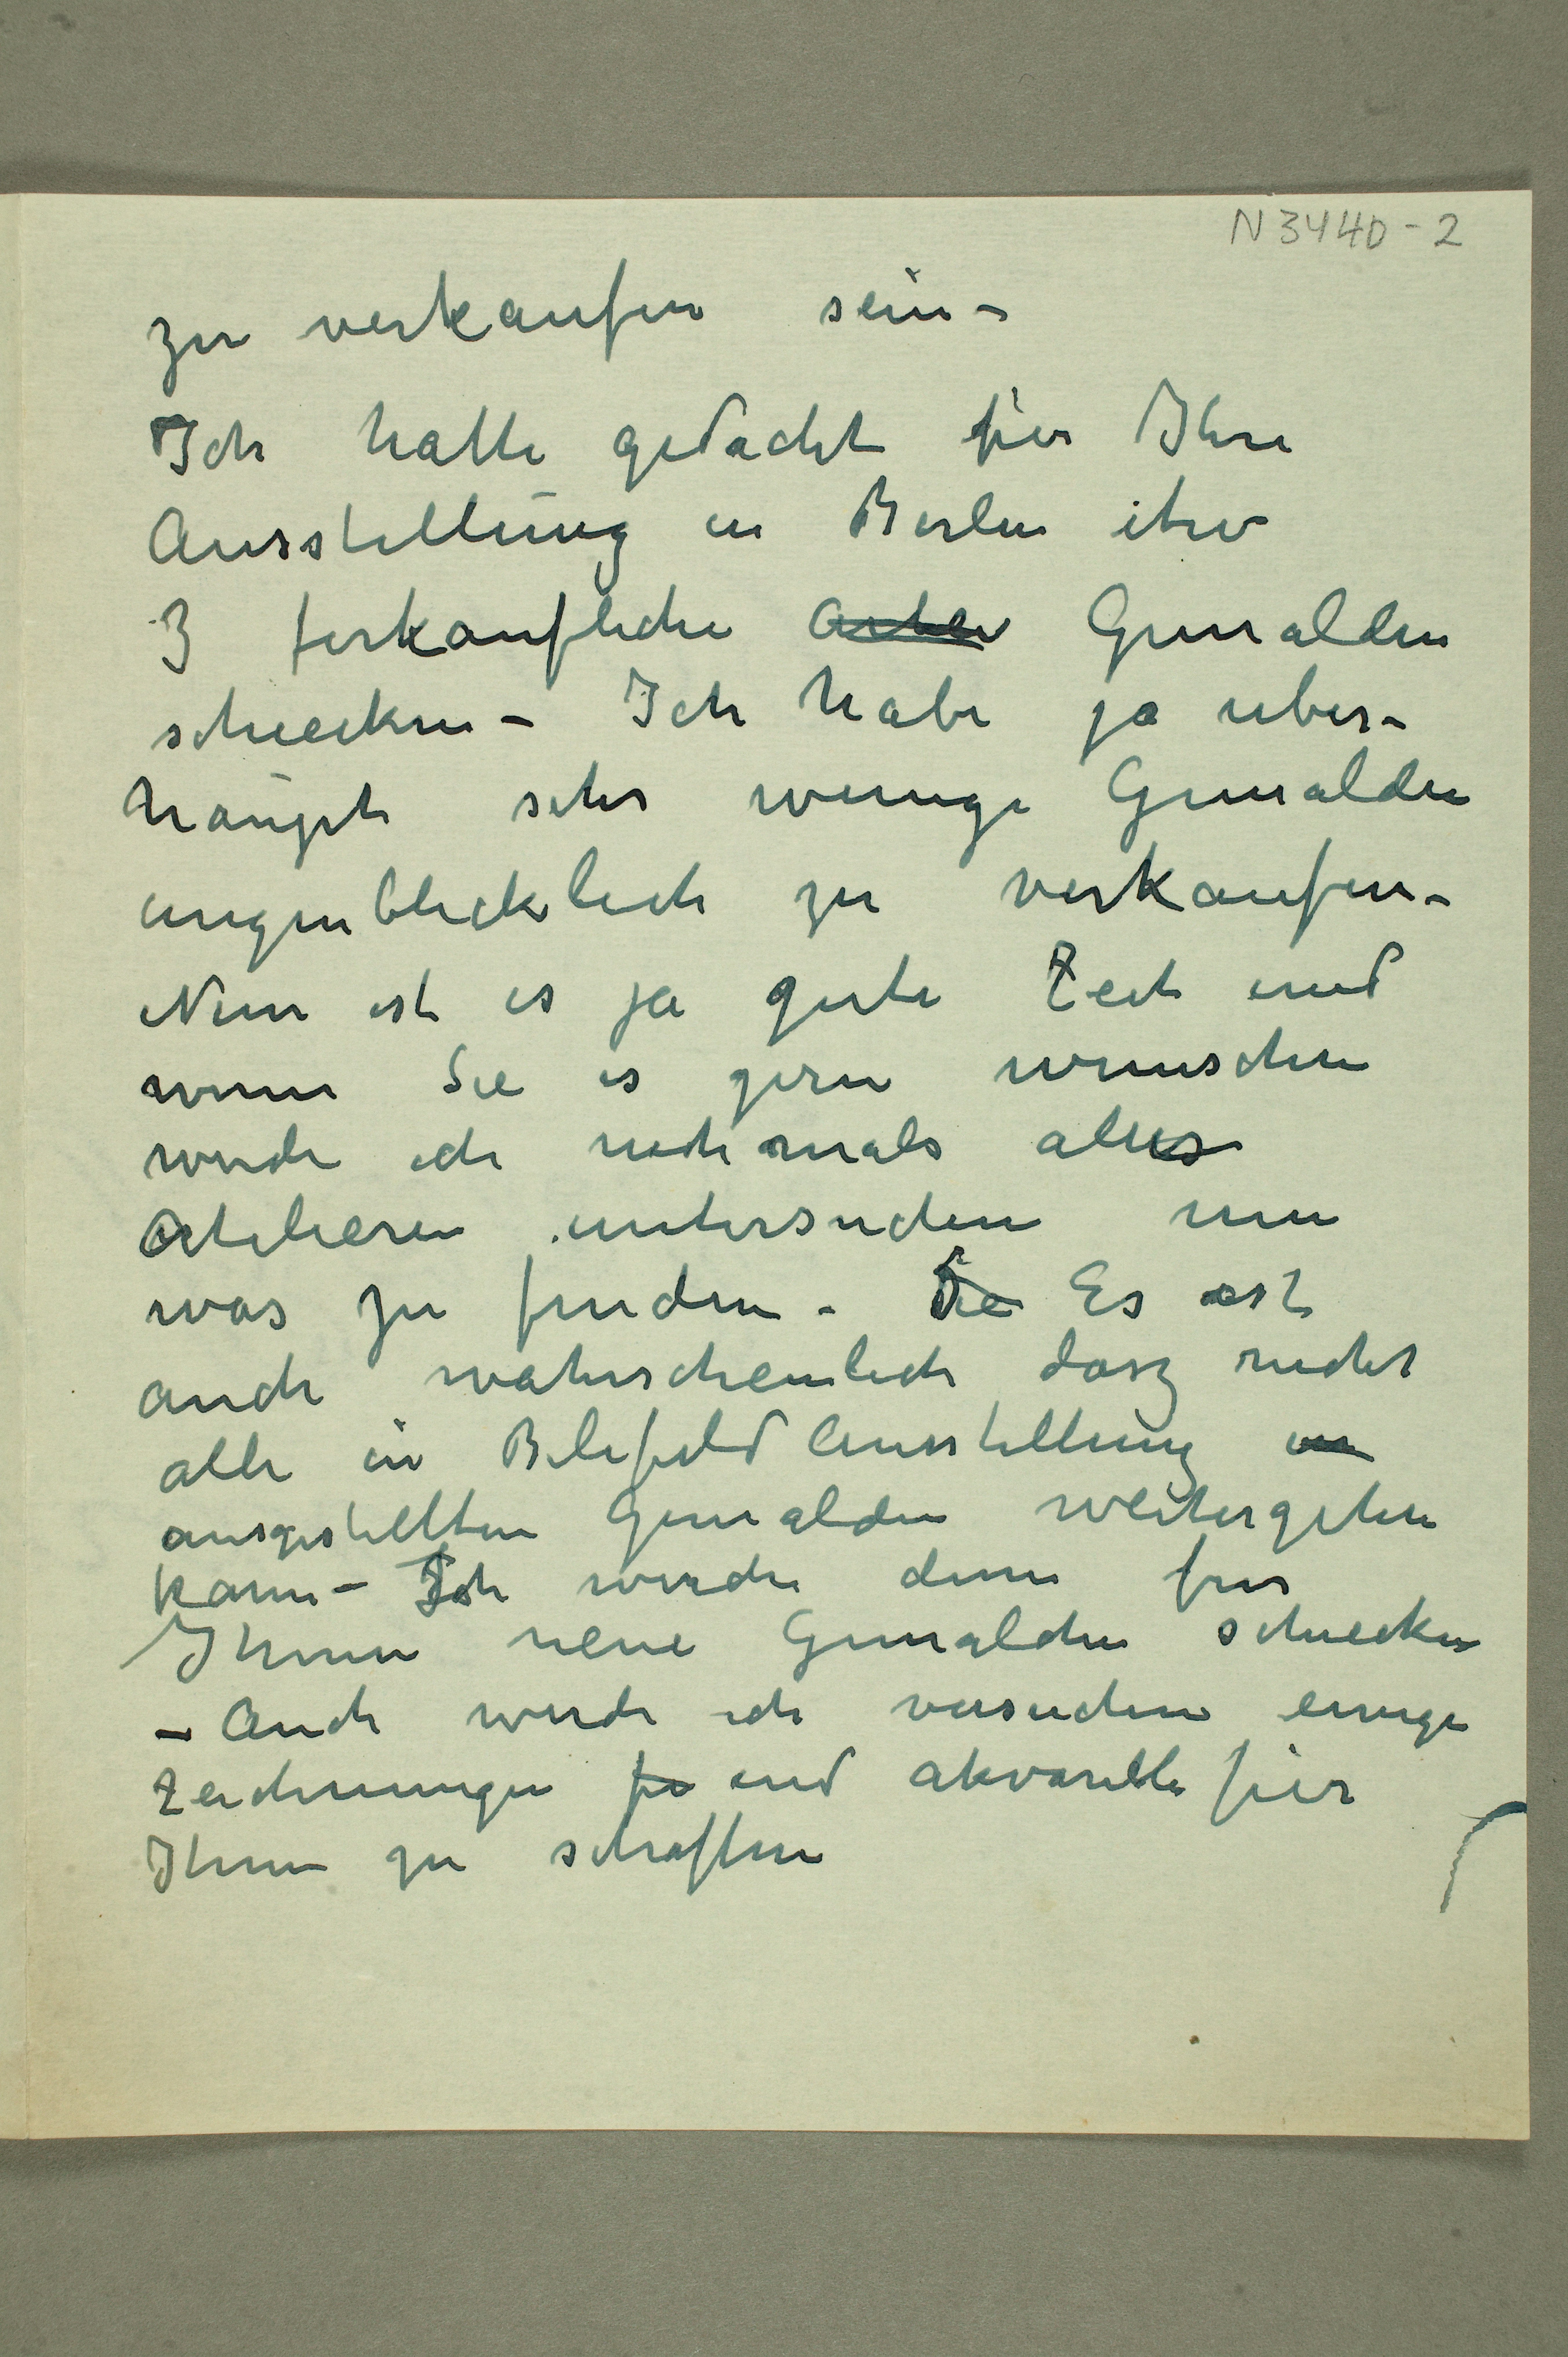 N 3440-2
zu verkaufen sein –
Ich hatte gedacht für Ihre
Ausstellung in Berlin etw
3 ferkaufliche Arbei Gemalden
schiecken – Ich habe ja uber-
haupt sehr wenige Gemalden
augenblicklich zu verkaufen –
Nun ist es ja gute Zeit und
wenn Sie es gern wunschen
werde ich nochmals alles
Atelieren untersuchen um
was zu finden – Sie Es ist
auch wahrscheinlich dasz nicht
alle in Bilefeld Ausstellung
ausgestellten Gemalden weitergehen
kann – Ich werde denn fur
Ihnen neue Gemalden schiecken
– Auch werde ich versuchen einige
Zeichnungen fü und akvarelle für
Ihnen zu schaffen